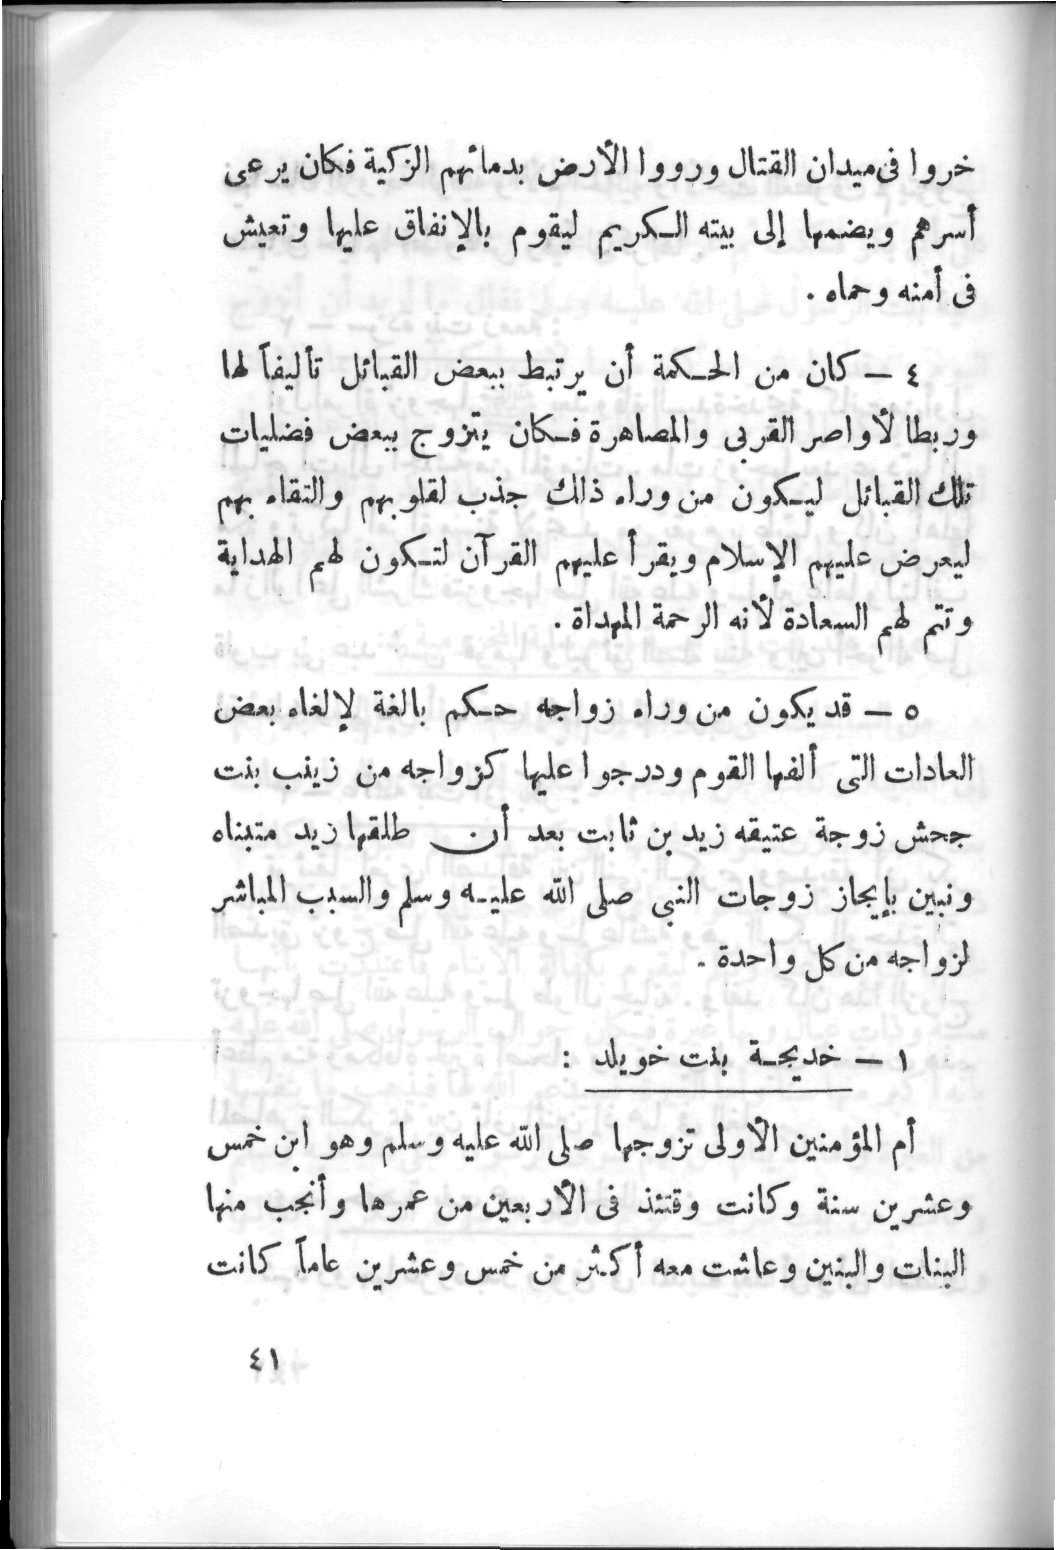 خروا فى ميدان القتال ورووا الأرض بدمائهم الزكية فكان يرعى
أسرهم ويضمها إلى بيته الكريم ليقوم بالإنفاق عليها وتعيش
فى أمنه وحماه .
٤ — كان من الحكمة أن يرتبط ببعض القبائل تأليفاً لها
وربطا لأواصر القربى والمصاهرة فكان يتزوج ببعض فضليات
تلك القبائل ليكون من وراء ذلك جذب لقلوبهم والتقاء بهم
ليعرض عليهم الإسلام ويقرأ عليهم القرآن لتكون لهم الهداية
وتتم لهم السعادة لأنه الرحمة المهداة .
٥ — قد يكون من وراء زواجه حكم بالغة لإلغاء بعض
العادات التى ألفها القوم ودرجوا عليها كزواجه من زينب بنت
جحش زوجة عتيقه زيد بن ثابت بعد أن طلقها زيد متبناه
ونبين بإيجاز زوجات النبي صلى الله عليه وسلم والسبب المباشر
لزواجه من كل واحدة .
١ — خديجة بنت خويلد :
أم المؤمنين الأولى تزوجها صلى الله عليه وسلم وهو ابن خمس
وعشرين سنة وكانت وقتئذ فى الأربعين من عمرها وأنجب منها
البنات والبنين وعاشت معه أكثر من خمس وعشرين عاماً كانت
٤١